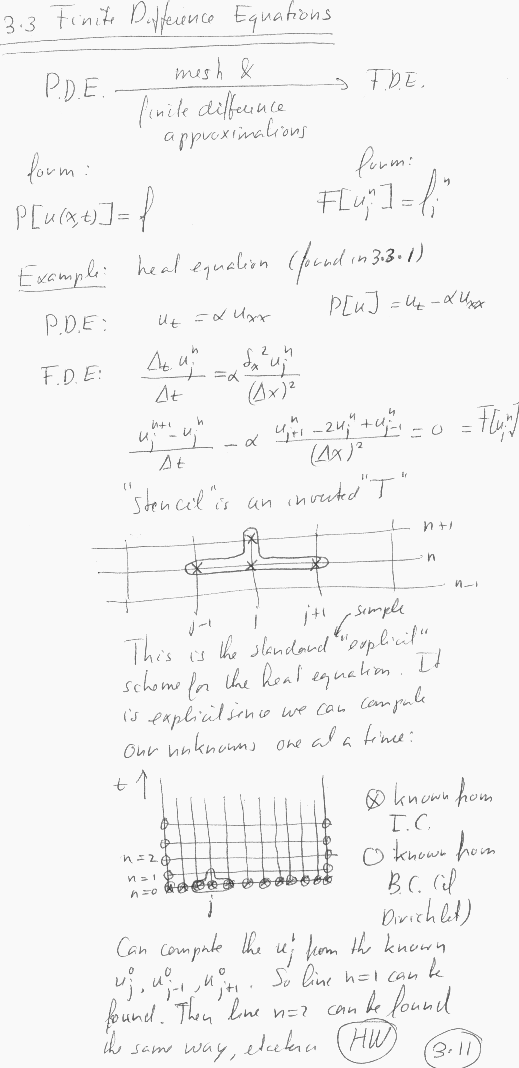 3.3 Finite Difference Equations
P.D.E. mesh & F.D.E.
finite difference
approximations
form: form:
P[u(x,t)] = f F[u_j^n] = f_j^n
Example: heat equation (found in 3.3.1)
P.D.E: u_t = α u_xx P[u] = u_t - α u_xx
F.D.E: Δ_t u_j^n / Δt = α δ_x^2 u_j^n / (Δx)^2
(u_j^{n+1} - u_j^n) / Δt - α (u_{j+1}^n - 2u_j^n + u_{j-1}^n) / (Δx)^2 = 0 = F[u_j^n]
"Stencil" is an inverted "T"
n+1
n
n-1
j-1 j j+1
simple
This is the standard "explicit"
scheme for the heat equation. It
is explicit since we can compute
our unknowns one at a time:
t
n=2
n=1
n=0
j
⊗ known from
I.C.
○ known from
B.C. (if
Dirichlet)
Can compute the u_j^1 from the known
u_j^0, u_{j-1}^0, u_{j+1}^0. So line n=1 can be
found. Then line n=2 can be found
the same way, etcetera HW
3.11